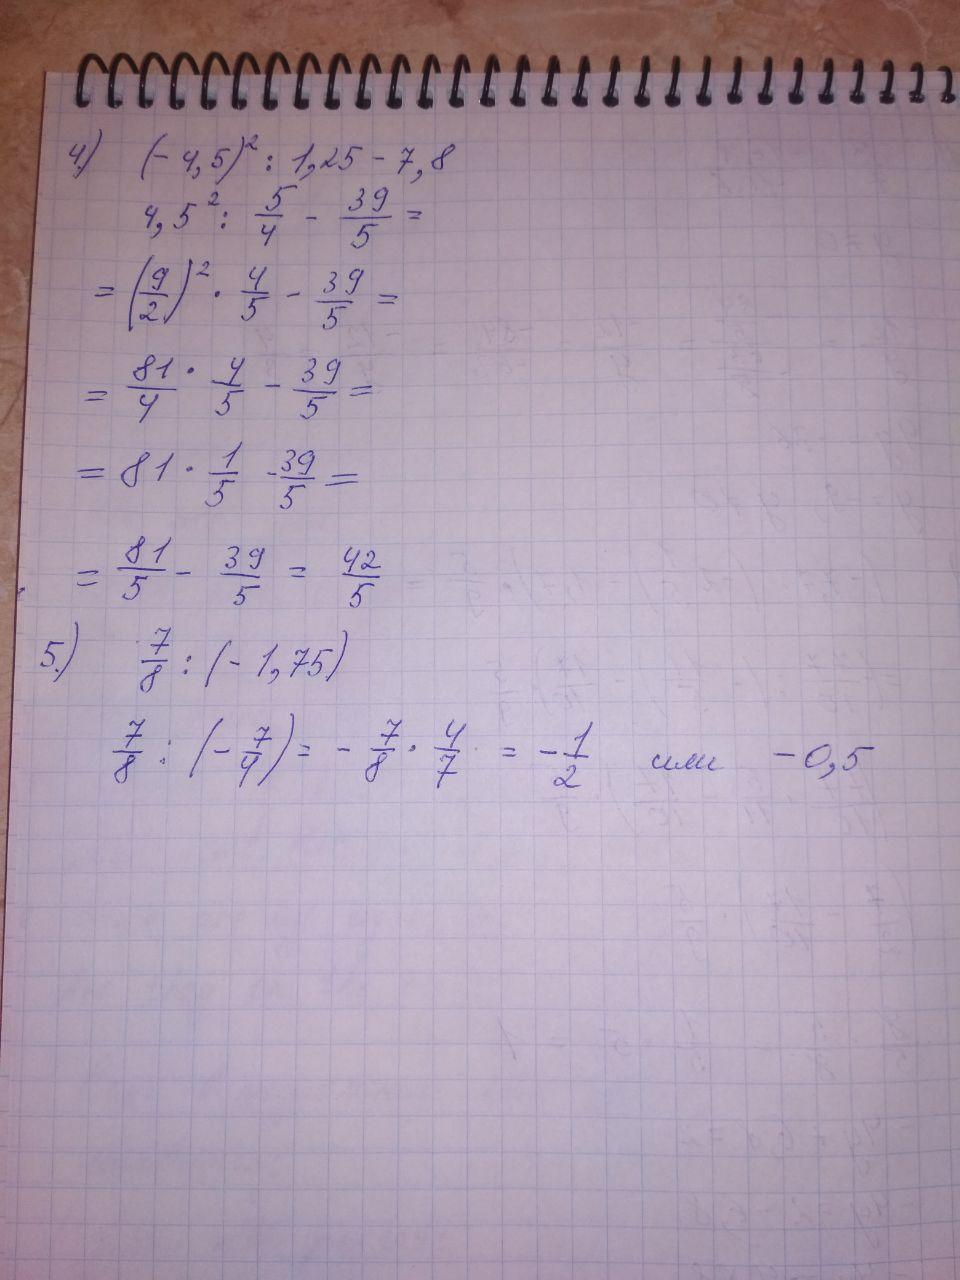 4.) (-4,5)² : 1,25 - 7,8
4,5² : 5/4 - 39/5 =
= (9/2)² · 4/5 - 39/5 =
= 81/4 · 4/5 - 39/5 =
= 81 · 1/5 - 39/5 =
= 81/5 - 39/5 = 42/5
5.) 7/8 : (-1,75)
7/8 : (-7/4) = - 7/8 · 4/7 = - 1/2 или -0,5